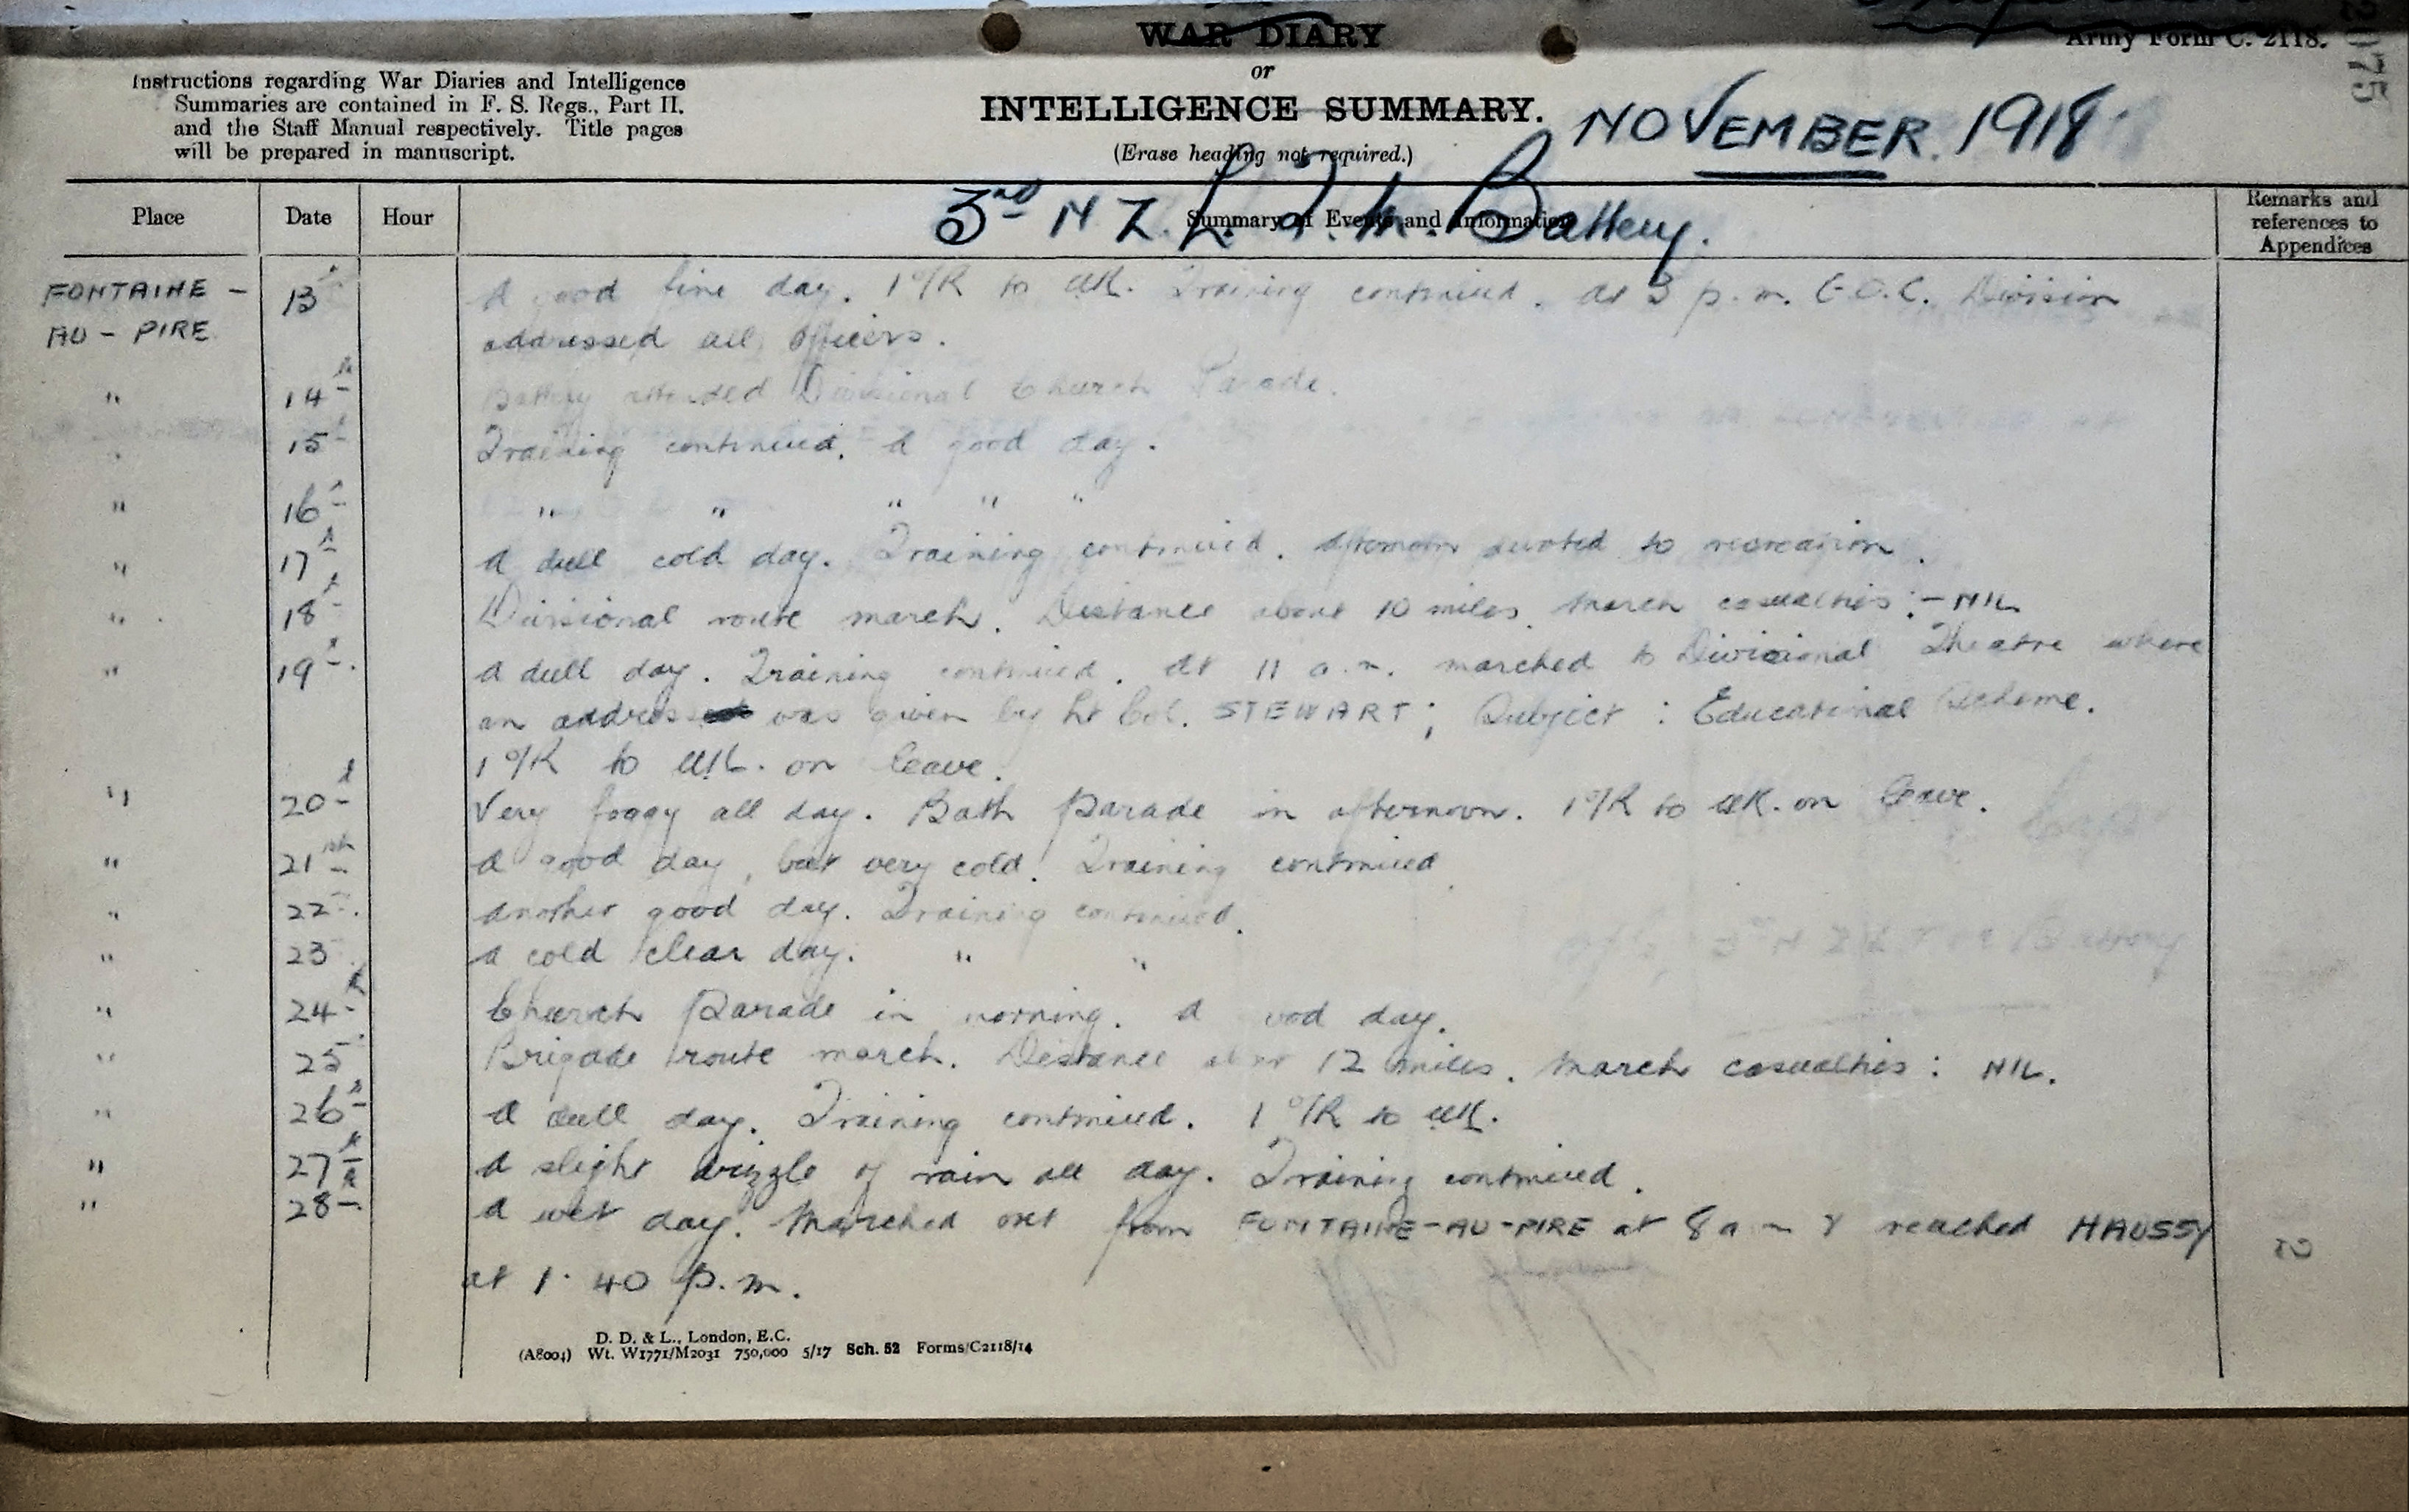 WAR DIARY
or
INTELLIGENCE SUMMARY.
(Erase heading not required.)
Army Form C. 2118.
Instructions regarding War Diaries and Intelligence
Summaries are contained in F. S. Regs., Part II.
and the Staff Manual respectively. Title pages
will be prepared in manuscript.
NOVEMBER 1918
3rd N Z. L. T. M. Battery.
Place Date Hour Summary of Events and Information Remarks and references to Appendices
FONTAINE - 13th A good fine day. 1 O/R to U.K. Training continued. At 3 p.m. G.O.C. Division
AU - PIRE addressed all Officers.
" 14th Battery attended Divisional Church Parade.
" 15th Training continued. A good day.
" 16th " " " " "
" 17th A dull cold day. Training continued. Afternoon devoted to recreation.
" 18th Divisional route march. Distance about 10 miles. March casualties :- NIL
" 19th. A dull day. Training continued. At 11 a.m. marched to Divisional Theatre where
an address was given by Lt Col. STEWART; Subject : Educational Scheme.
1 O/R to U.K. on leave.
" 20th Very foggy all day. Bath Parade in afternoon. 1 O/R to U.K. on leave.
" 21st A good day, but very cold. Training continued
" 22nd. Another good day. Training continued.
" 23 A cold clear day. " "
" 24th Church Parade in morning. A good day.
" 25 Brigade route march. Distance about 12 miles. March casualties : NIL.
" 26th A dull day. Training continued. 1 O/R to U.K.
" 27th A slight drizzle of rain all day. Training continued.
" 28th A wet day. Marched out from FONTAINE-AU-PIRE at 8 a m & reached HAUSSY
at 1.40 p.m.
D. D. & L., London, E.C.
(A8004) Wt. W1771/M2031 750,000 5/17 Sch. 52 Forms/C2118/14